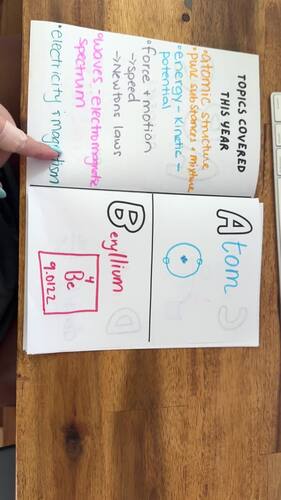 TOPICS COVERED
THIS YEAR
• atomic structure
• pure substances + mixture
• energy - kinetic -
potential
• force + motion
→ speed
→ Newtons laws
• waves - electromagnetic
spectrum
• electricity + magnetism
Atom
Beryllium
4
Be
9.0122